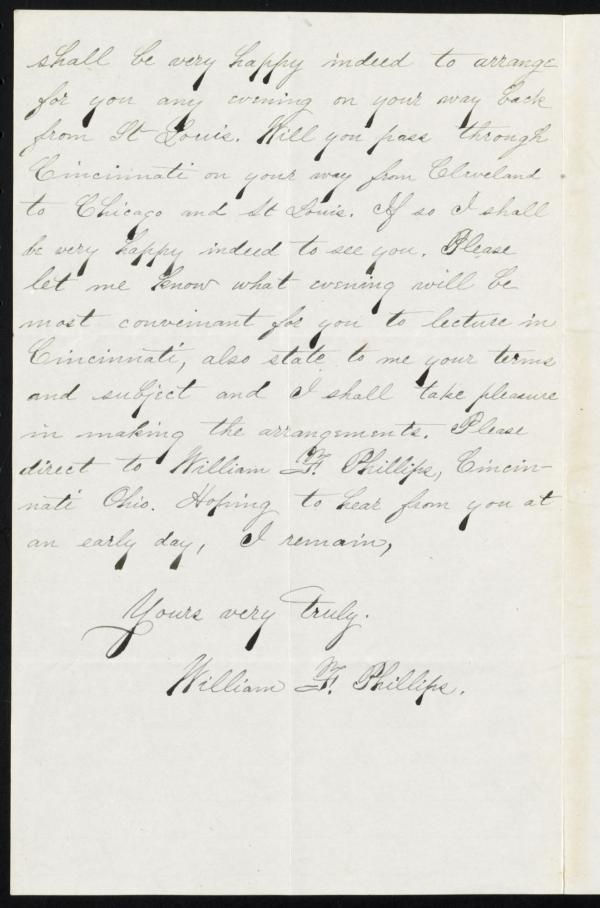 shall be very happy indeed to arrange
for you any evening on your way back
from St Louis. Will you pass through
Cincinnati on your way from Cleveland
to Chicago and St Louis. If so I shall
be very happy indeed to see you. Please
let me know what evening will be
most conveinant for you to lecture in
Cincinnati, also state to me your terms
and subject and I shall take pleasure
in making the arrangements. Please
direct to William F. Phillips, Cincin-
nati Ohio. Hoping to hear from you at
an early day, I remain,
Yours very truly.
William F. Phillips.